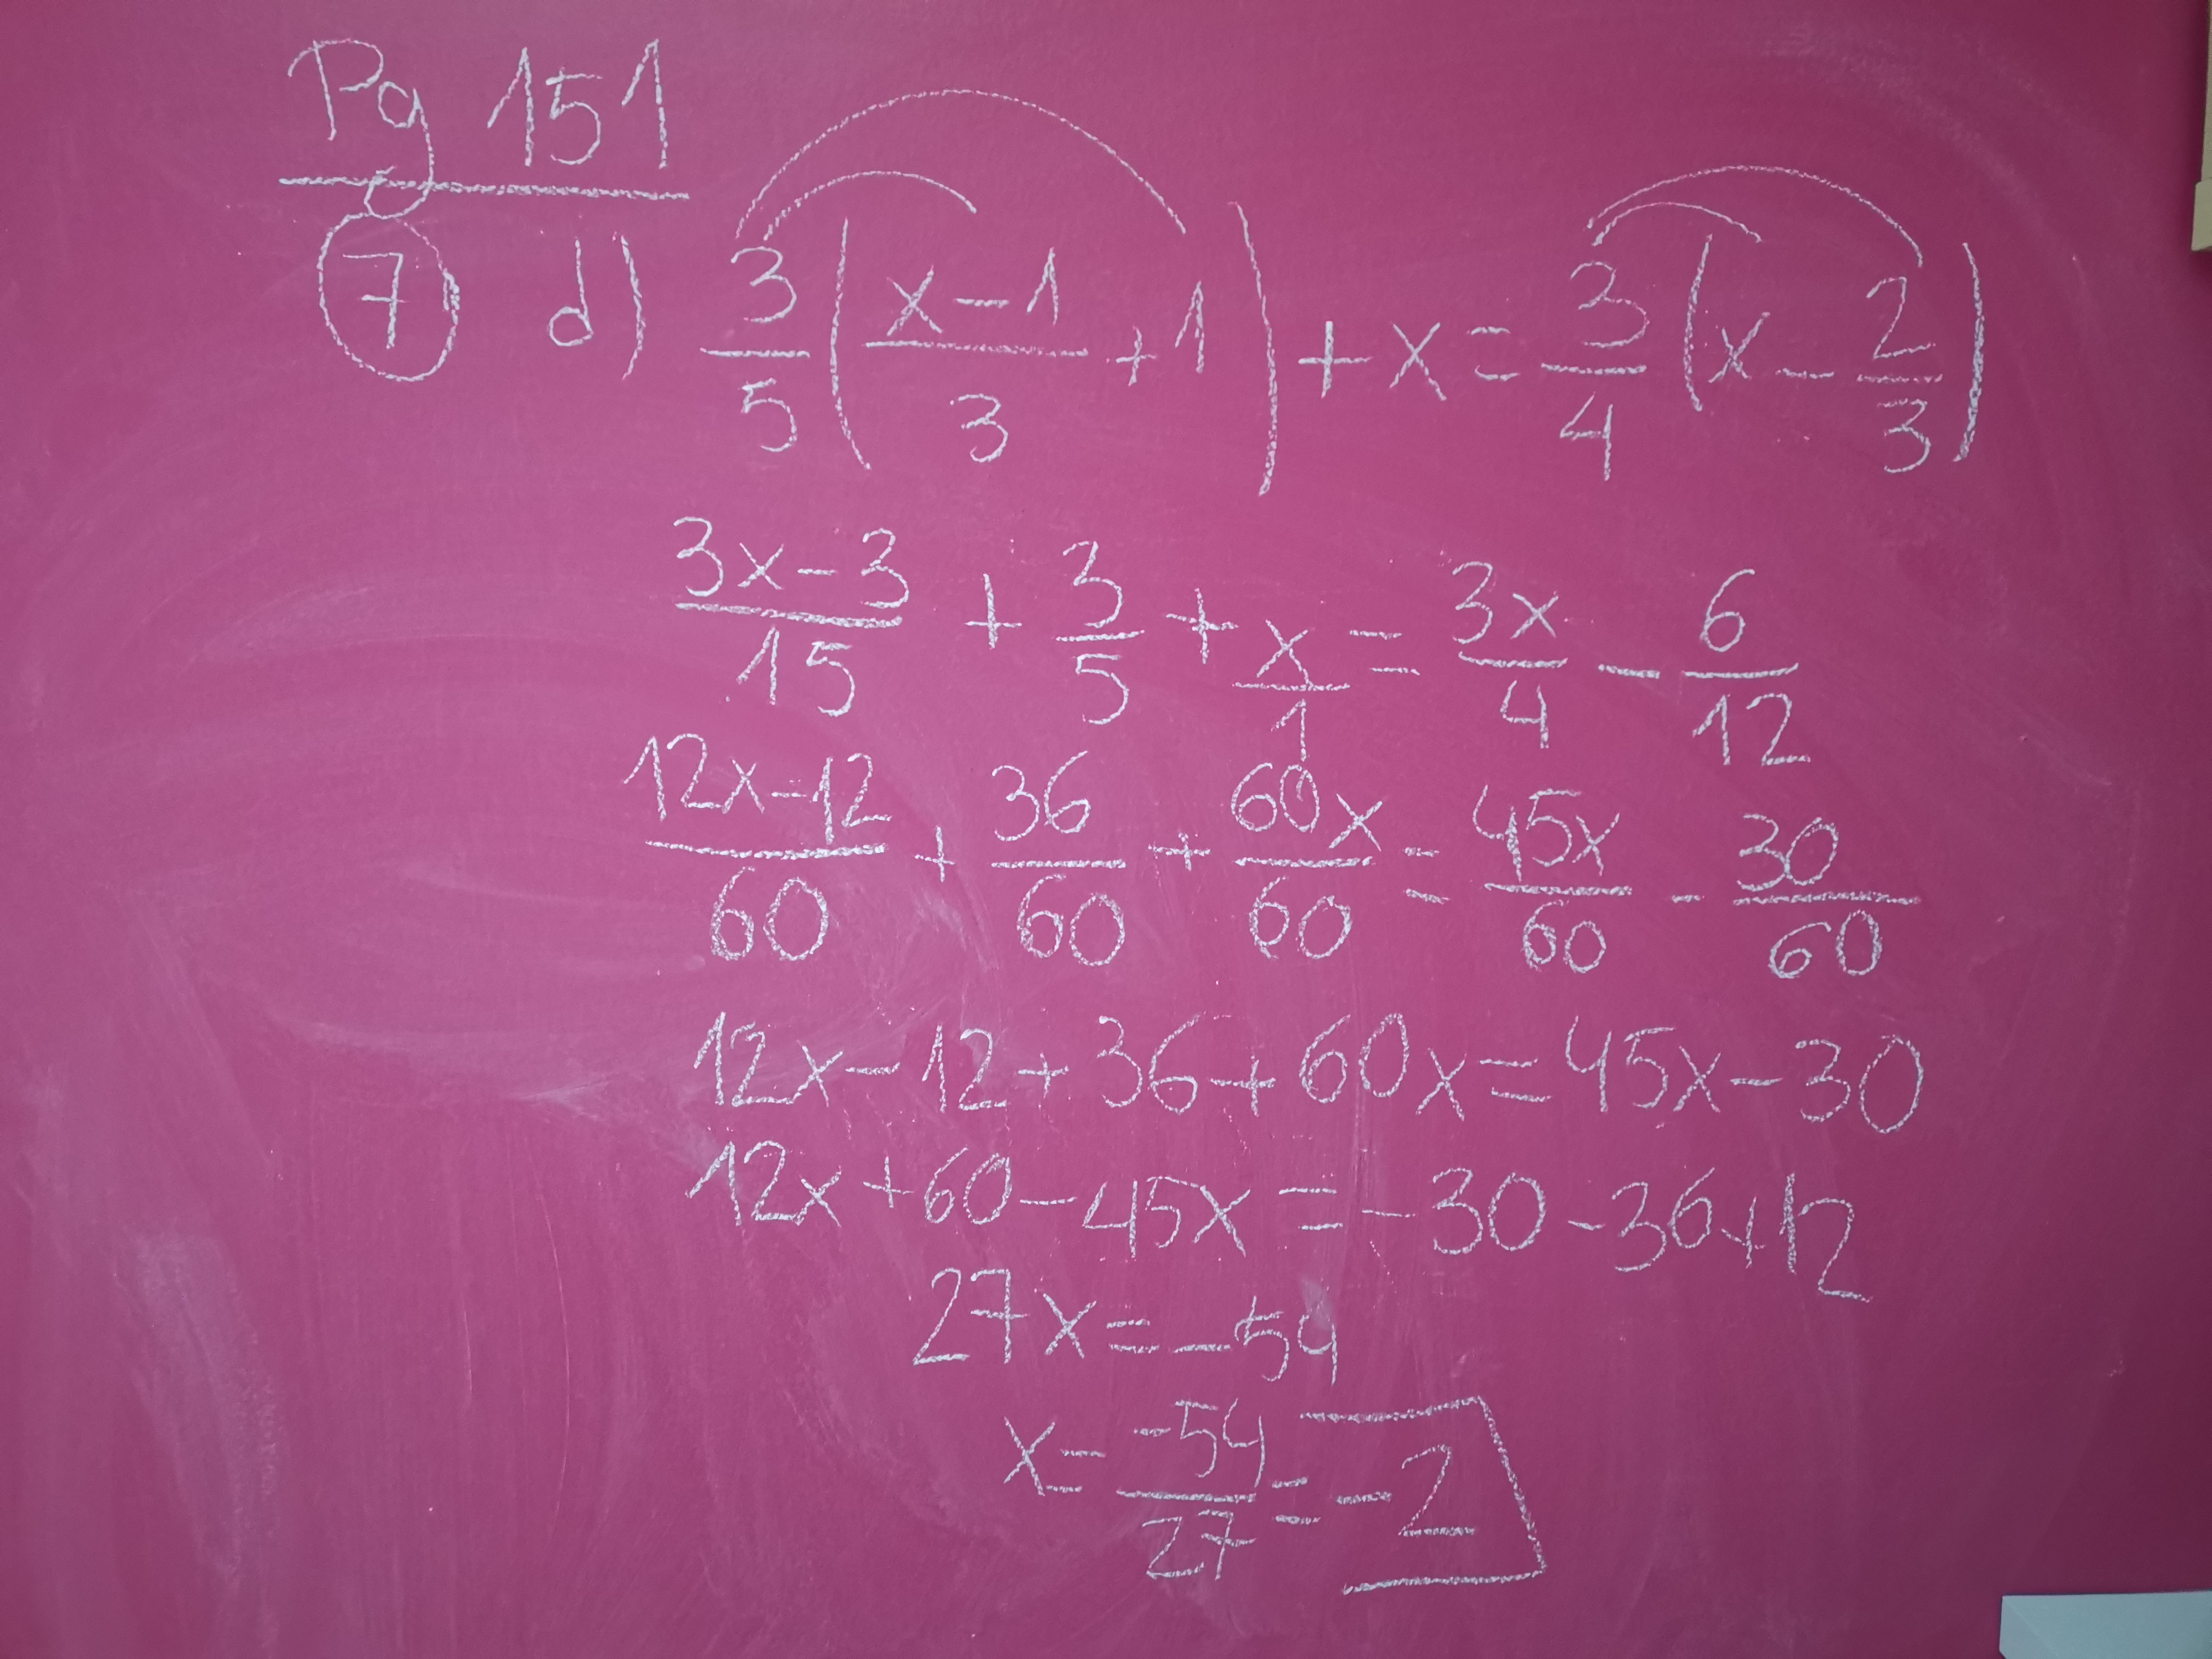 Pg 151
7 d) 3/5 (x-1/3 + 1) + x = 3/4 (x - 2/3)
3x-3/15 + 3/5 + x/1 = 3x/4 - 6/12
12x-12/60 + 36/60 + 60x/60 = 45x/60 - 30/60
12x-12+36+60x=45x-30
12x+60-45x=-30-36+12
27x=-54
x=-54/27=-2